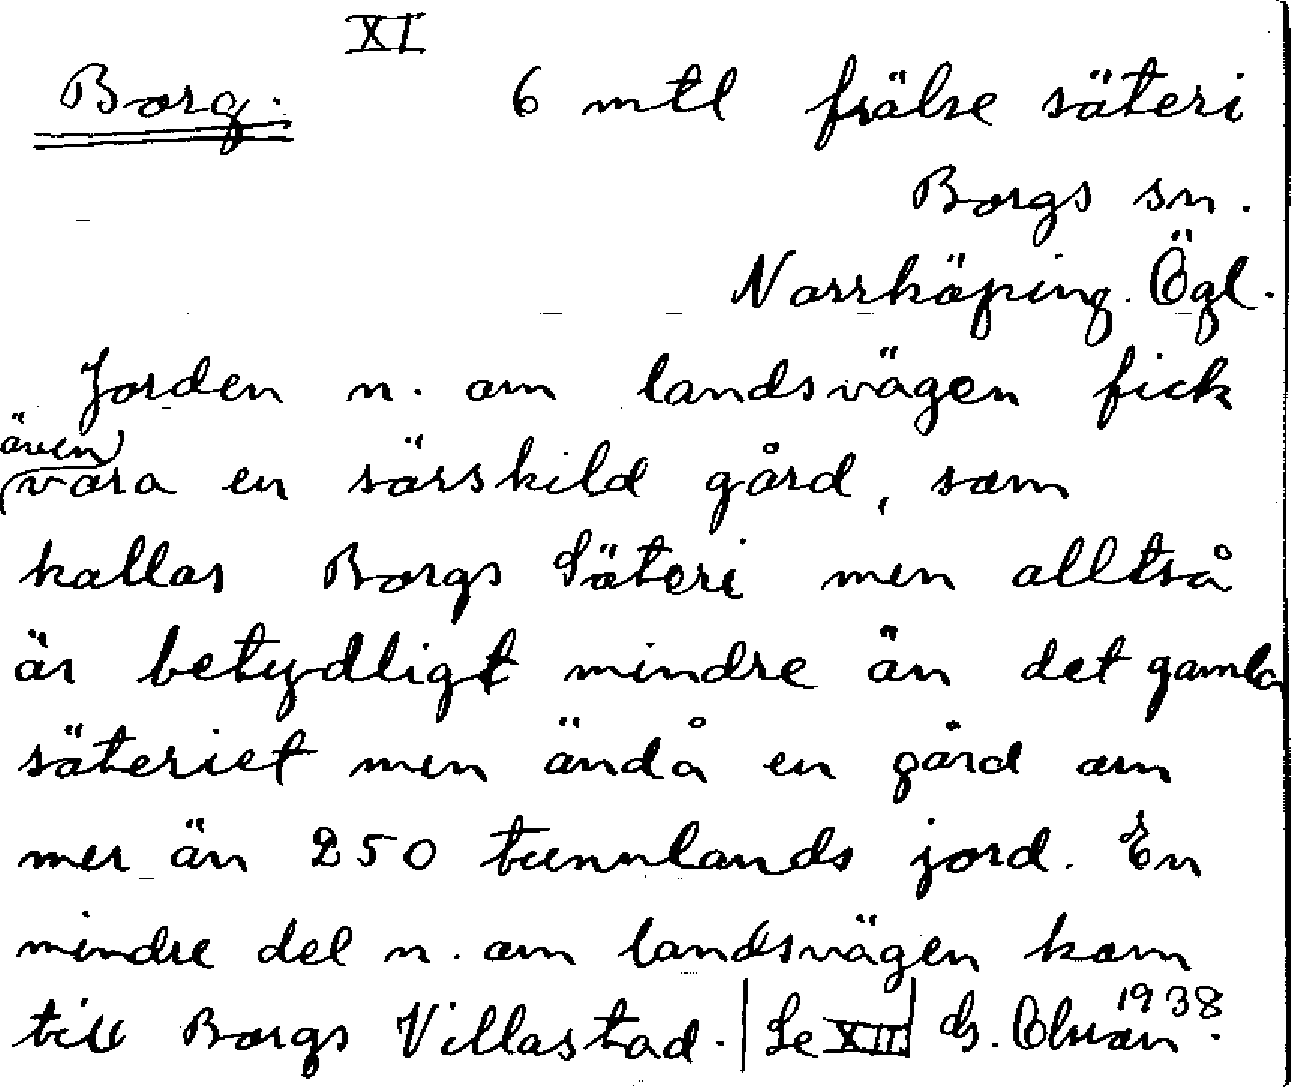 XI
Borg. 6 mtl frälse säteri
Borgs sn.
Norrköping. Ögl.
Jorden n. om landsvägen fick
även
vara en särskild gård, som
kallas Borgs Säteri men alltså
är betydligt mindre än det gamla
säteriet men ändå en gård om
mer än 250 tunnlands jord. En
mindre del n. om landsvägen kom
till Borgs Villastad. | Se XII | G. 1938.